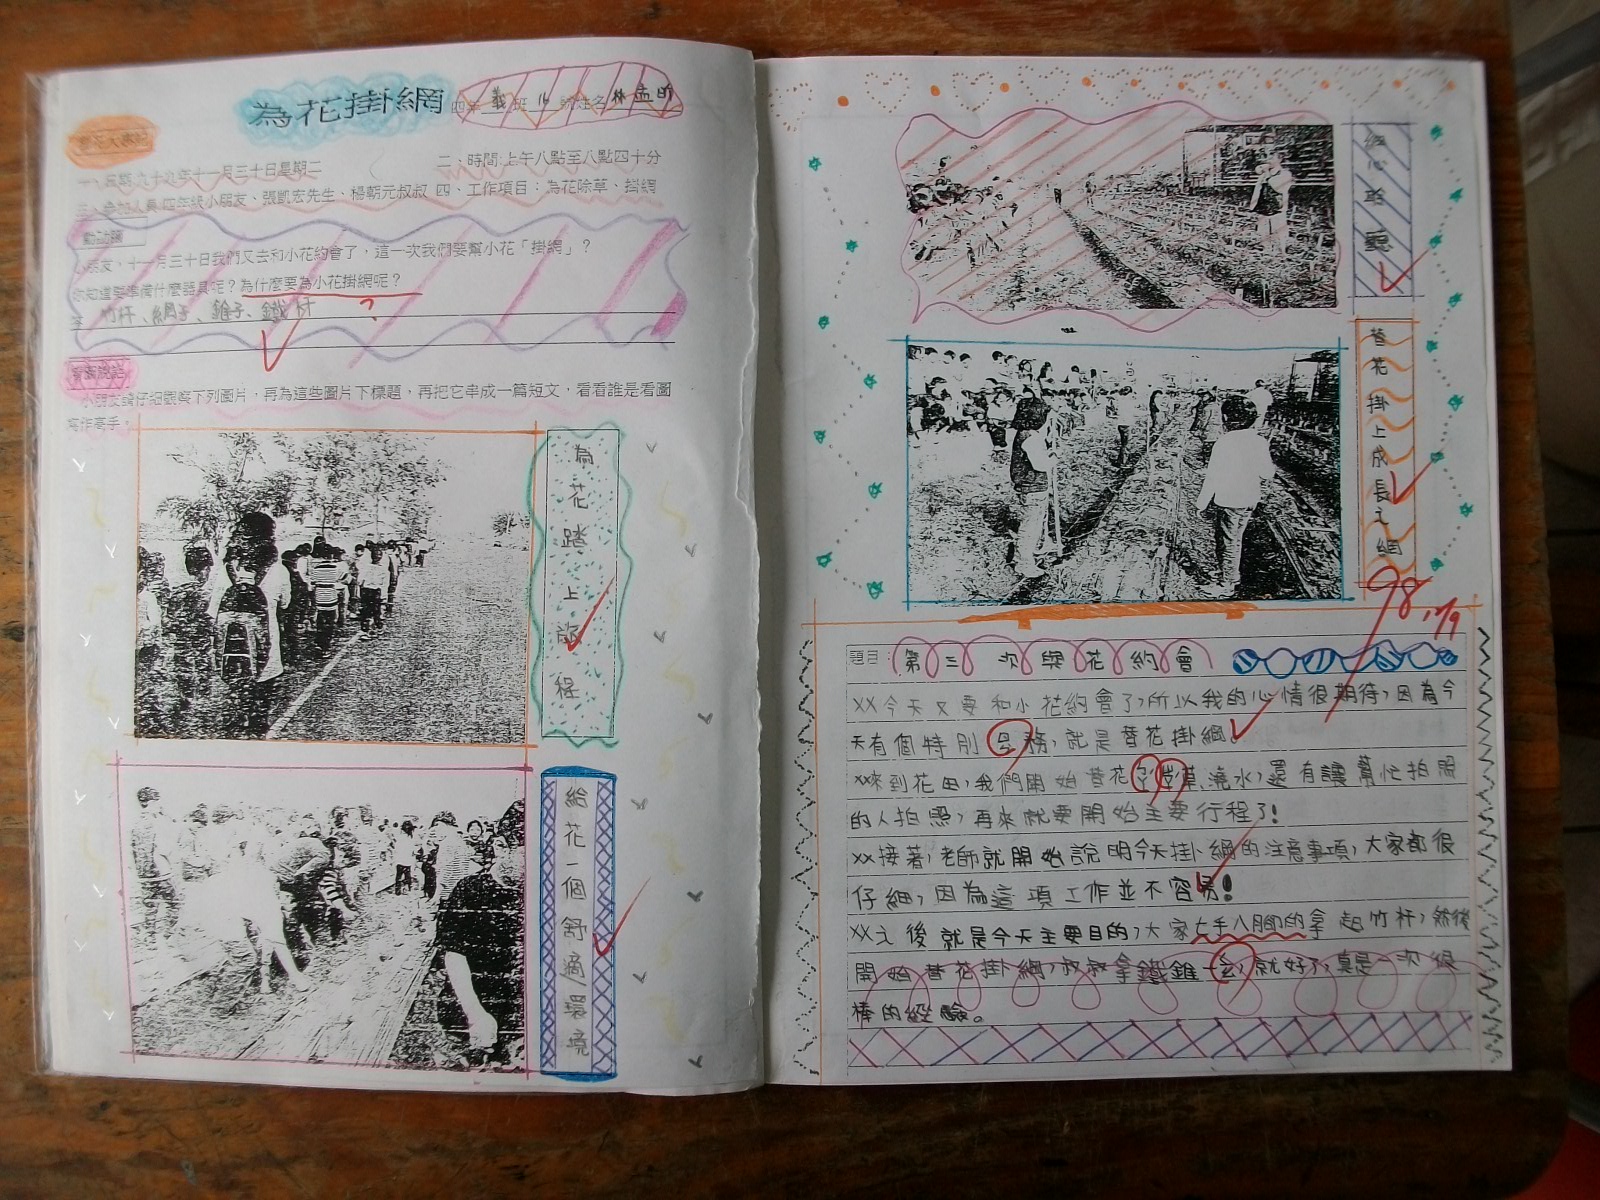 為花掛網 四年 義 班 16 號姓名 林孟昕
一、日期:九十九年十一月三十日星期二 二、時間:上午八點至八點四十分
三、參加人員:四年級小朋友、張凱宏先生、楊朝元叔叔 四、工作項目：為花除草、掛網
動動腦
小朋友，十一月三十日我們又去和小花約會了，這一次我們要幫小花「掛網」？
你知道要準備什麼器具呢？為什麼要為小花掛網呢？
答 竹杆、網子、錐子、鐵杆
看圖說話
小朋友請仔細觀察下列圖片，再為這些圖片下標題，再把它串成一篇短文，看看誰是看圖
寫作高手。
為花踏上旅程
給花一個舒適環境
細心聆聽
替花掛上成長之網
98
12/9
題目：第三次與花約會
××今天又要和小花約會了,所以我的心情很期待,因為今
天有個特別 務,就是替花掛網。
××來到花田,我們開始替花 草、澆水,還有讓幫忙拍照
的人拍照,再來就要開始主要行程了!
××接著,老師就開始說明今天掛網的注意事項,大家都很
仔細,因為這項工作並不容易!
××之後就是今天主要目的,大家七手八腳的拿起竹杆,然後
開始替花掛網,叔叔拿鐵錐一 ,就好了,真是一次很
棒的經驗。